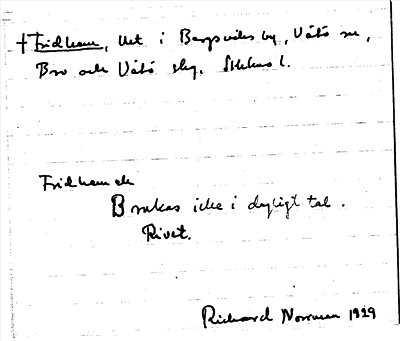 † Fridhem, lht i Bergsvikes by, Vätö sn,
Bro och Vätö skg. Sthlms l.
Fridhem de
Brukas icke i dagligt tal.
Rivet.
Richard Norrman 1929